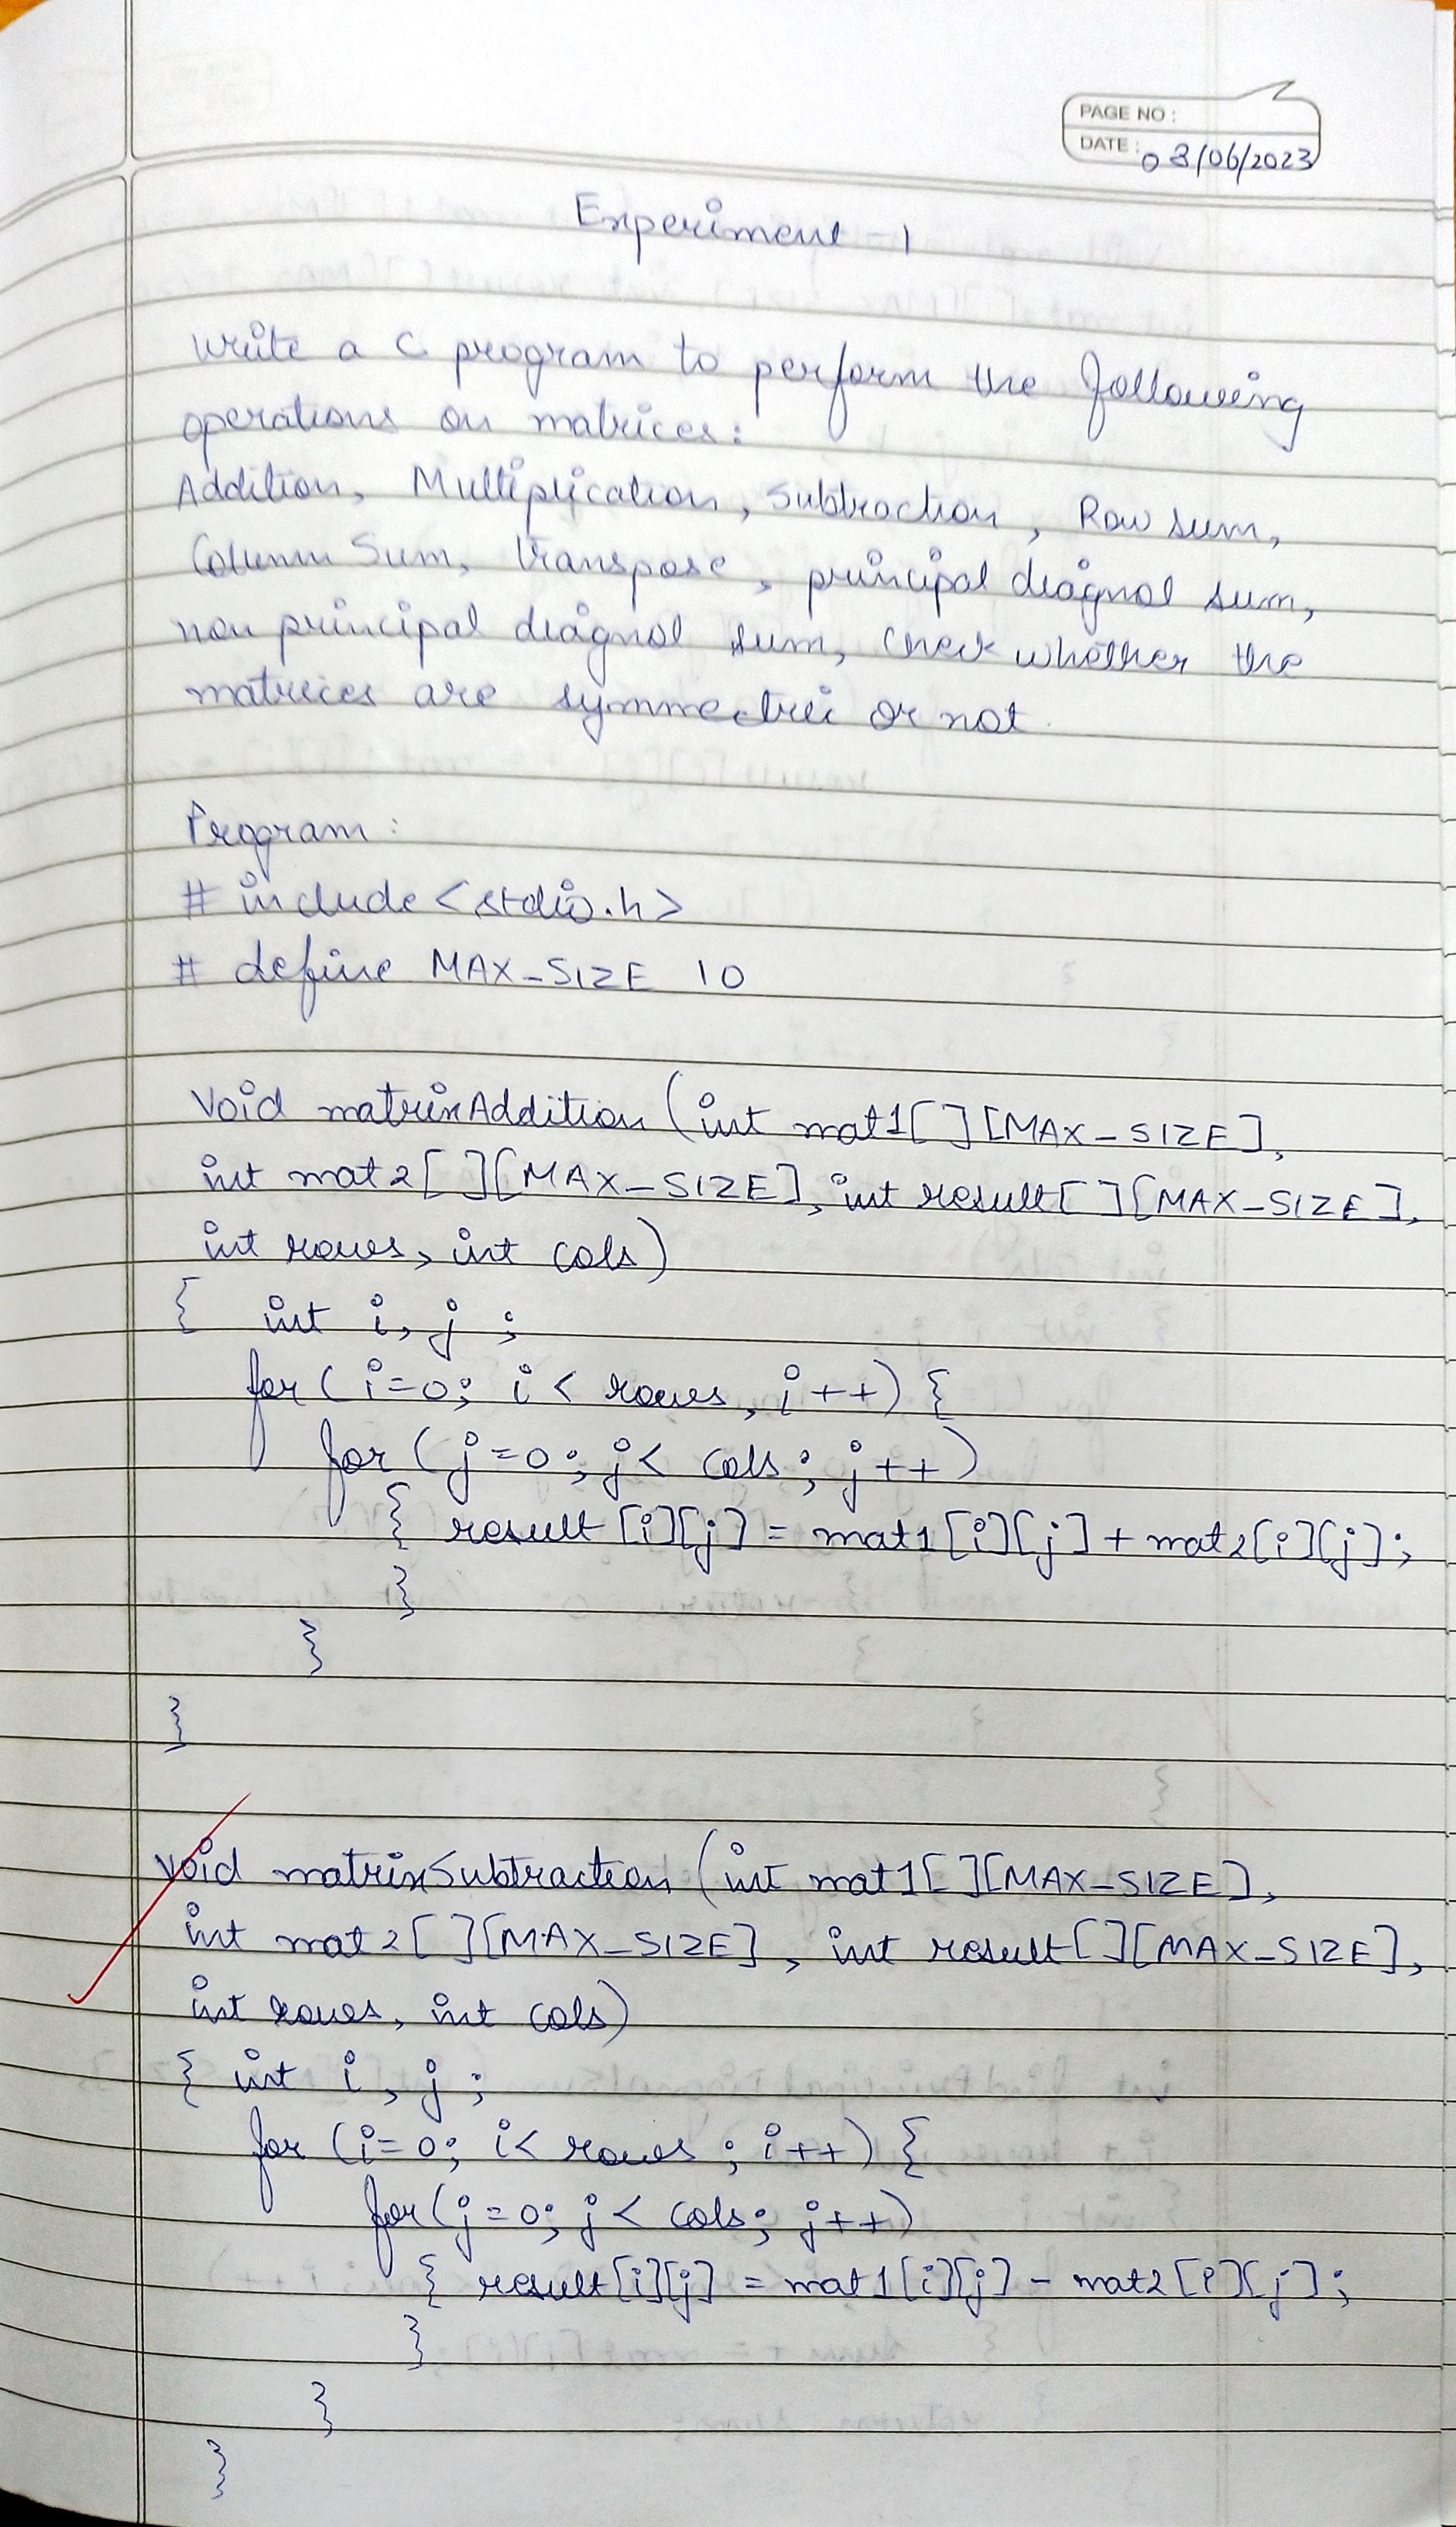 PAGE NO :
DATE : 08/06/2023
Experiment - 1
Write a C program to perform the following
operations on matrices:
Addition, Multiplication, Subtraction, Row sum,
Column Sum, Transpose, principal diagnol sum,
non principal diagnol sum, Check whether the
matrices are symmectric or not.
Program :
# include <stdio.h>
# define MAX_SIZE 10
Void matrixAddition (int mat1[][MAX_SIZE],
int mat2[][MAX_SIZE], int result[][MAX_SIZE],
int rows, int cols)
{ int i, j ;
for (i=0; i < rows, i++) {
for (j=0; j< cols; j++)
{ result [i][j] = mat1[i][j] + mat2[i][j];
}
}
}
Void matrixSubtraction (int mat1[][MAX_SIZE],
int mat2[][MAX_SIZE], int result[][MAX_SIZE],
int rows, int cols)
{ int i, j ;
for (i=0; i< rows ; i++) {
for (j=0; j < cols; j++)
{ result[i][j] = mat1[i][j] - mat2[i][j];
}
}
}